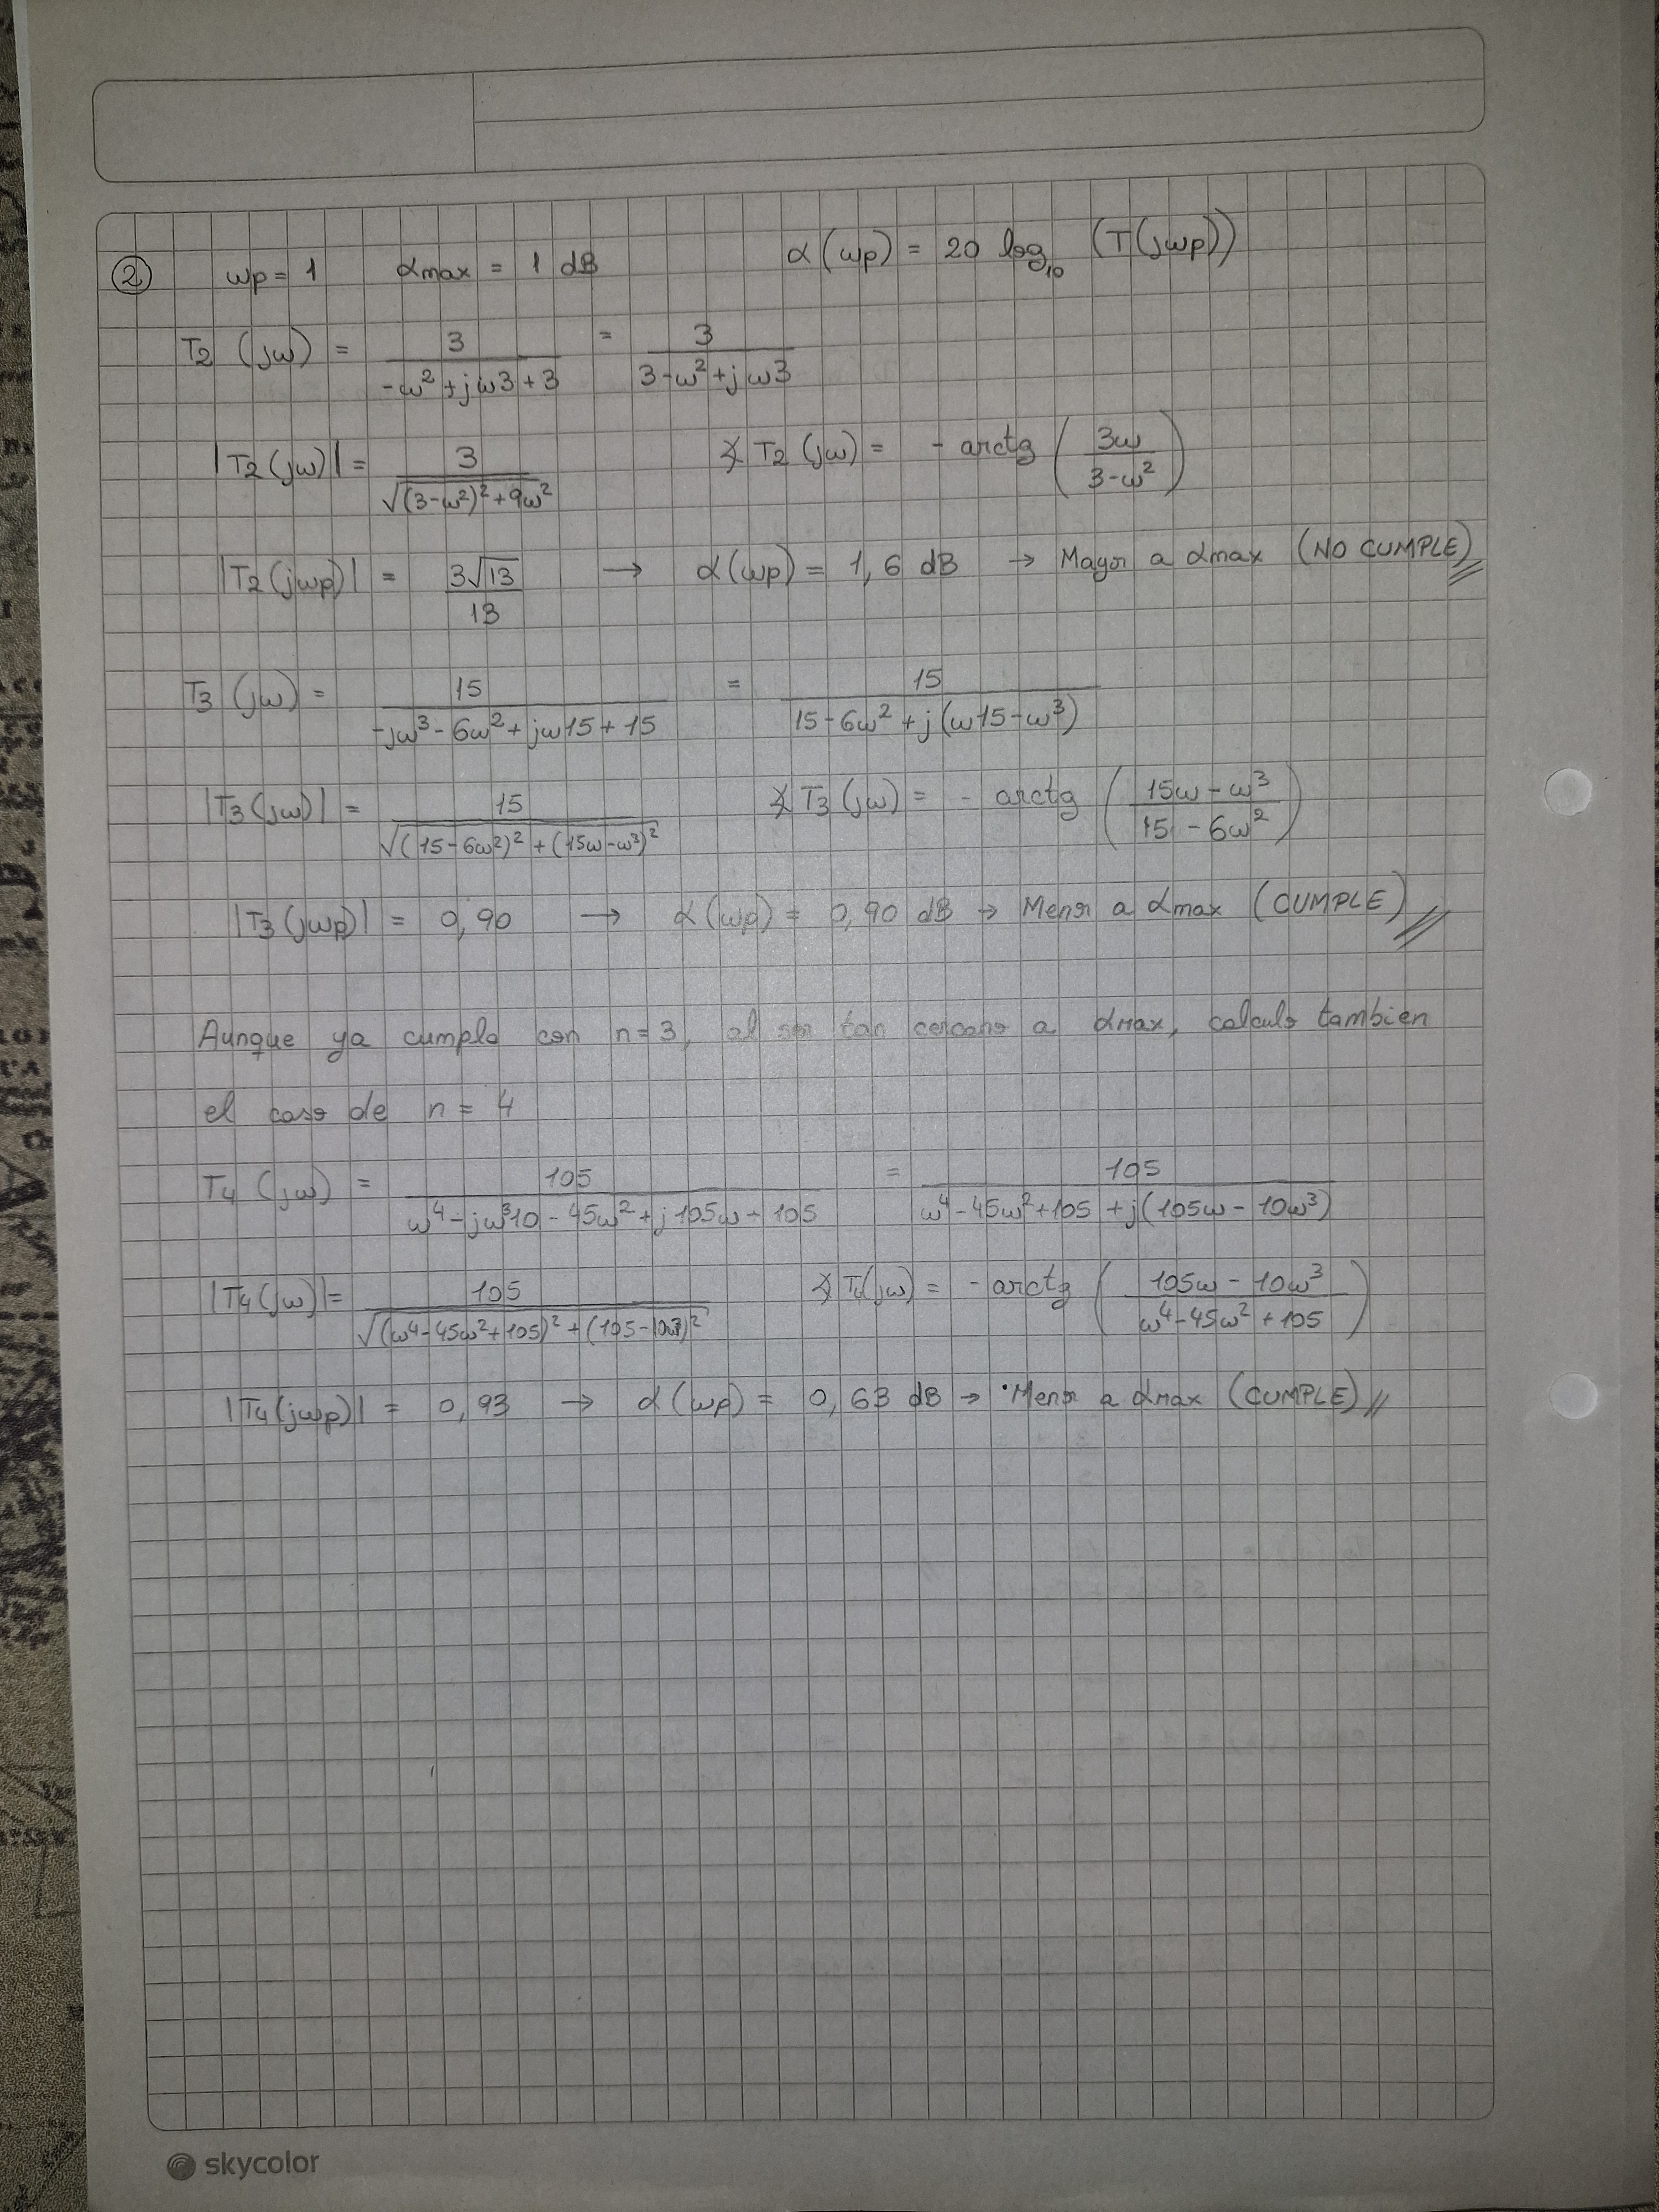 ② ωp = 1 αmax = 1 dB α(ωp) = 20 log₁₀ (T(jωp))
T2 (jω) = 3 / (-ω² + jω3 + 3) = 3 / (3-ω² + jω3)
|T2(jω)| = 3 / √((3-ω²)² + 9ω²) ∡ T2(jω) = - arctg (3ω / (3-ω²))
|T2(jωp)| = 3√13 / 13 → α(ωp) = 1,6 dB → Mayor a αmax (NO CUMPLE)
T3 (jω) = 15 / (-jω³ - 6ω² + jω15 + 15) = 15 / (15 - 6ω² + j(ω15 - ω³))
|T3(jω)| = 15 / √((15-6ω²)² + (15ω-ω³)²) ∡ T3(jω) = - arctg ((15ω - ω³) / (15 - 6ω²))
|T3(jωp)| = 0,90 → α(ωp) = 0,90 dB → Menor a αmax (CUMPLE)
Aunque ya cumplo con n=3, al ser tan cercano a αmax, calculo tambien
el caso de n = 4
T4 (jω) = 105 / (ω⁴ - jω³10 - 45ω² + j105ω + 105) = 105 / (ω⁴ - 45ω² + 105 + j(105ω - 10ω³))
|T4(jω)| = 105 / √((ω⁴-45ω²+105)² + (105-10ω³)²) ∡ T4(jω) = - arctg ((105ω - 10ω³) / (ω⁴ - 45ω² + 105))
|T4(jωp)| = 0,93 → α(ωp) = 0,63 dB → Menor a αmax (CUMPLE)
skycolor